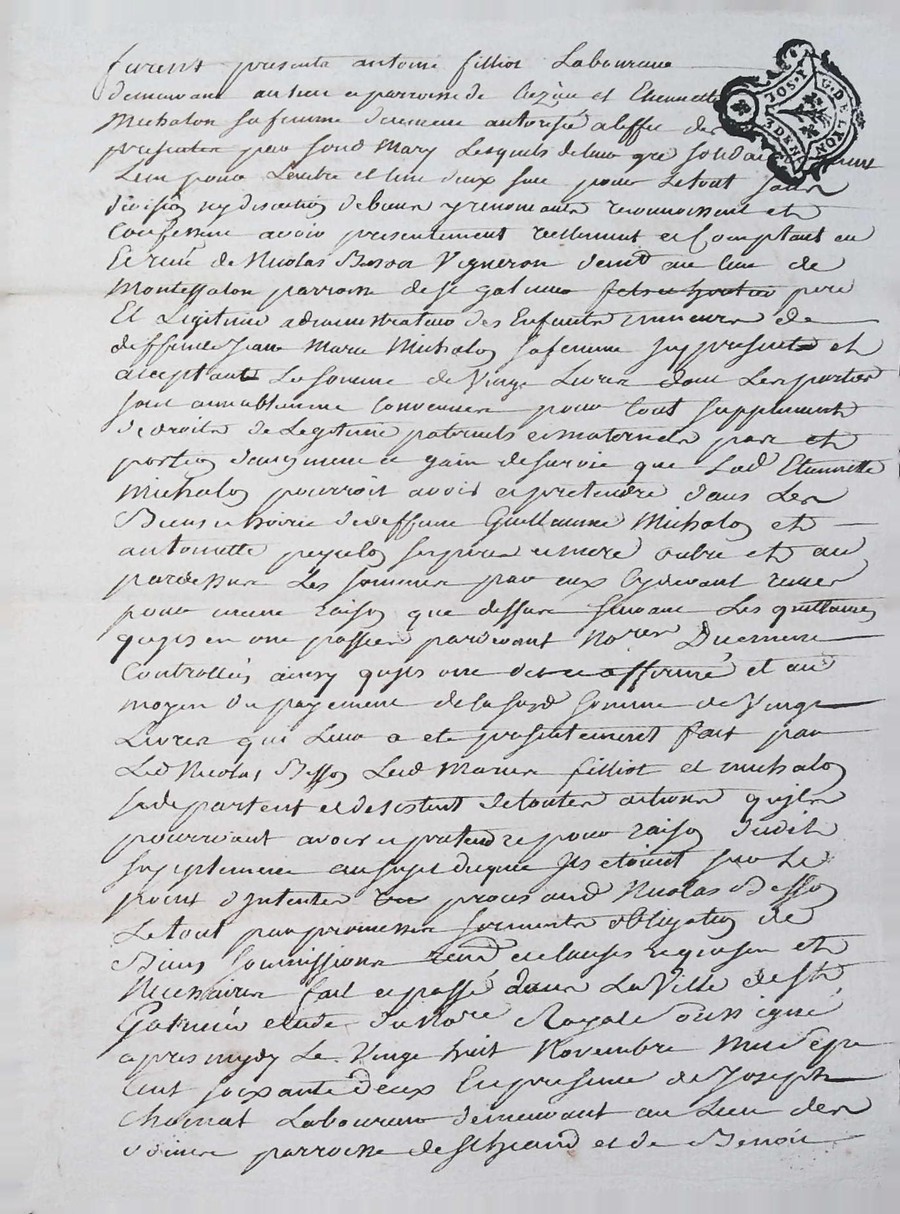 furent presents antoine filliot Laboureur
demeurant au lieu et parroisse de et Etiennette
Michalon sa femme duement autorisée a leffet des
presentes par sond Mary Lesquels de leur gré
Lun pour Lautre et lun deux seul pour Le tout sans
division ny discution de biens y renoncants reconnoissent et
Confessent avoir presentement reellement et Comptant eu
Et receu de Nicolas Besson Vigneron demt au lieu de
parroisse de st galmier pere
Et Legitime administrateur des Enfants mineurs de
deffunte Jeanne Marie Michalon sa femme icy present et
acceptant La somme de Vingt Livres dont Les parties
sont amiablement Convenues pour tout supplement
de droits de Legitime paternels et maternels part et
portion daugment et gain de survie que Lad Etiennette
Michalon pourroit avoir et pretendre dans Les
Biens et hoirie de deffunt Guillaume Michalon et
antoinette ses pere et mere outre et au
pardessus Les sommes par eux cydevant receues
pour meme raison que dessus suivant Les quittances
quils en ont passées pardevant Nores Ducrment
Controllées ainsy quils ont affirmé et au
moyen du payement de la susd somme de Vingt
Livres qui Leur a eté presentement fait par
Led Nicolas Besson Lesd Mariés filliot et michalon
se departent et desistent de toutes actions quils
pourroient avoir et pretendre pour raison dudit
supplement au sujet duquel ils etoient sur Le
point dintenter proces aud Nicolas Besson
Le tout par promesses serments obligation de
Biens soumissions renons et clauses requises et
Necessaires fait et passé dans La Ville de st
Galmier etude du Nore Royale soussigné
apres mydy Le Vingt huit Novembre Mil sept
cent soixante deux En presence de Joseph
Laboureur demeurant au Lieu des
parroisse de et de Benoit
G. DE LYON